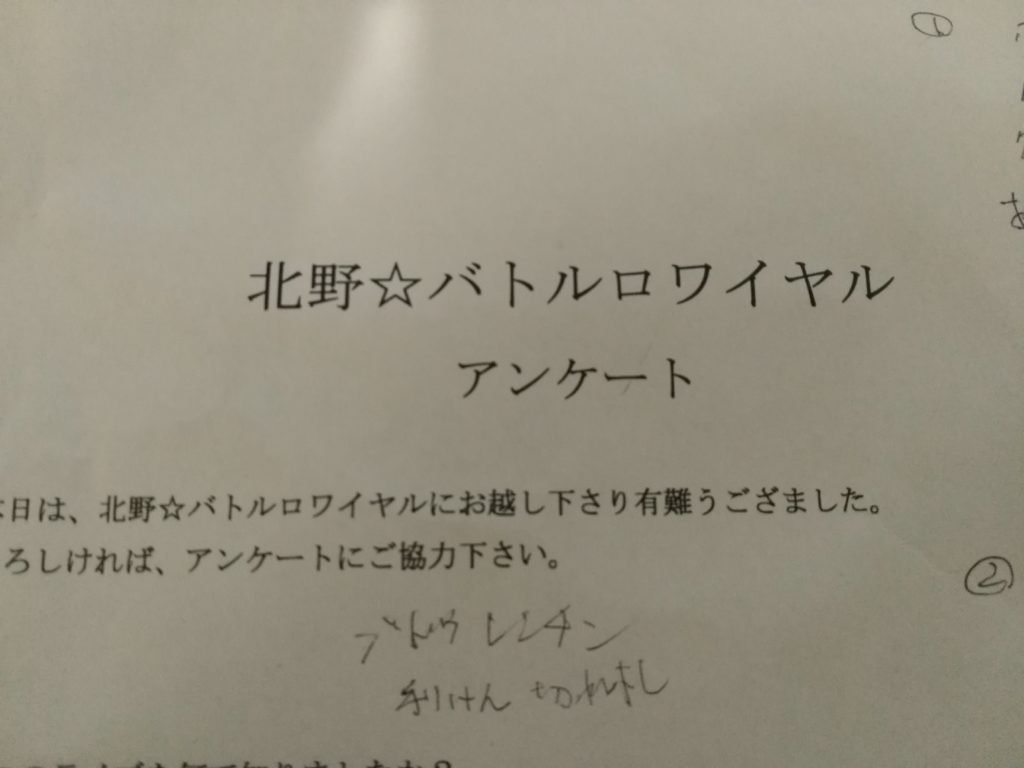 ①
北野☆バトルロワイヤル
アンケート
本日は、北野☆バトルロワイヤルにお越し下さり有難うござました。
ろしければ、アンケートにご協力下さい。
②
ブドウ レンチン
利けん 切れ端し